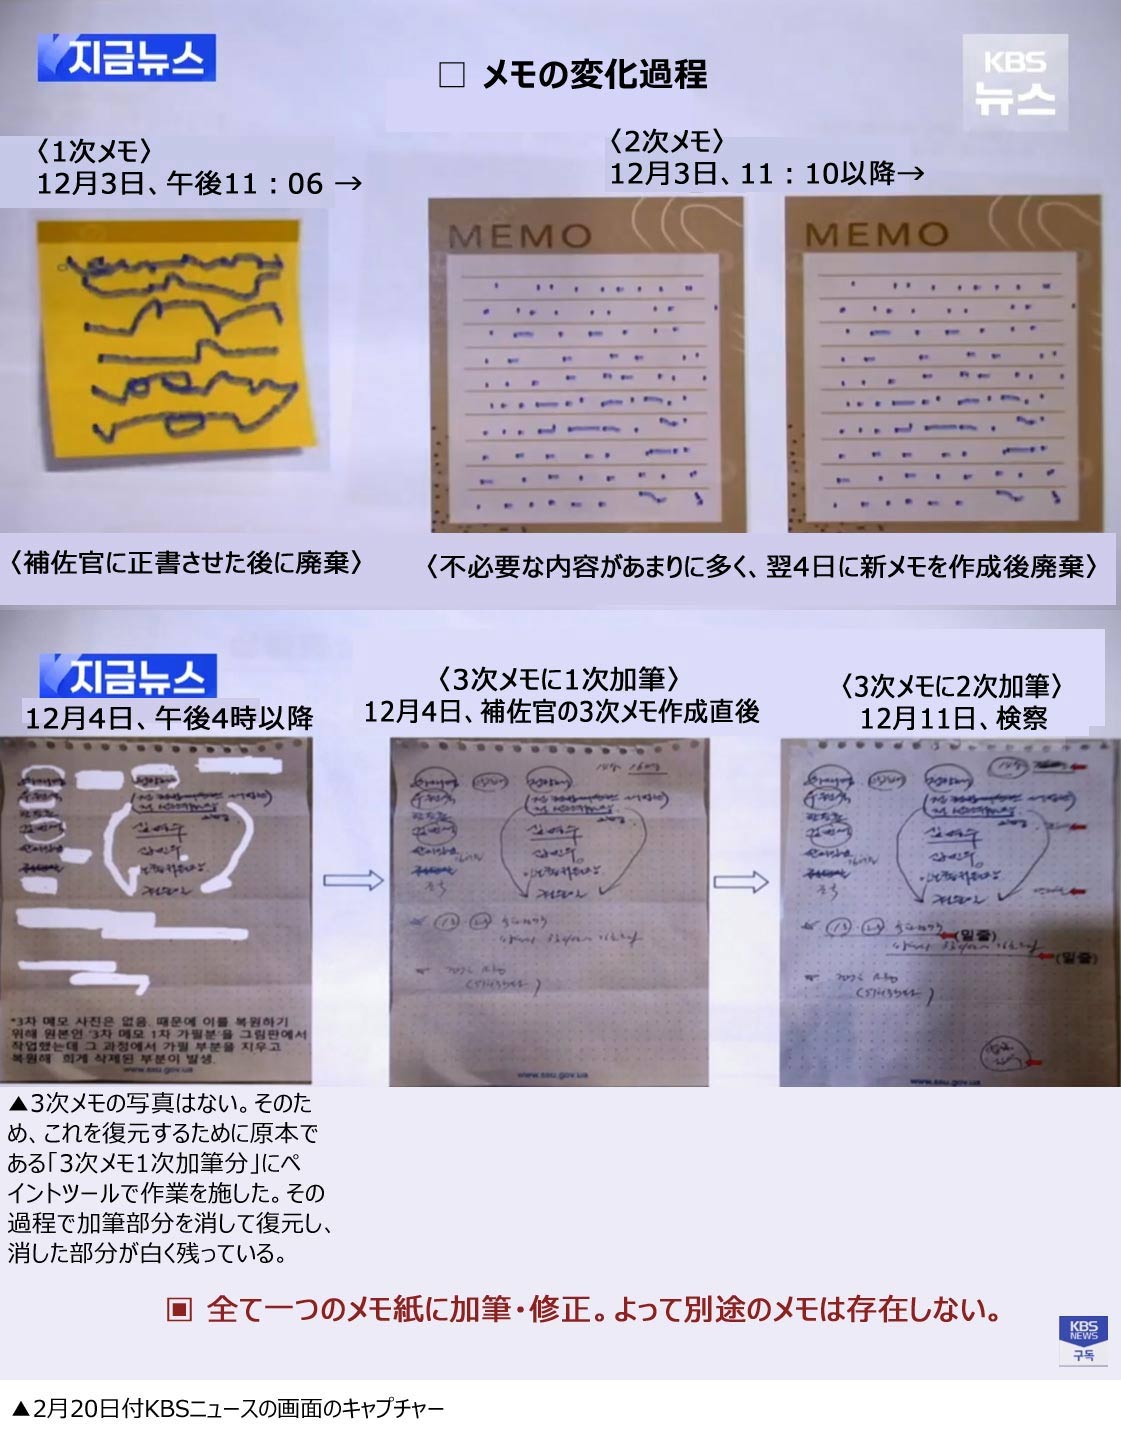 지금뉴스
□ メモの変化過程
KBS
뉴스
〈1次メモ〉
12月3日、午後11：06 →
〈2次メモ〉
12月3日、11：10以降→
MEMO
MEMO
〈補佐官に正書させた後に廃棄〉
〈不必要な内容があまりに多く、翌4日に新メモを作成後廃棄〉
지금뉴스
12月4日、午後4時以降
〈3次メモに1次加筆〉
12月4日、補佐官の3次メモ作成直後
〈3次メモに2次加筆〉
12月11日、検察
(밑줄)
(밑줄)
*3차 메모 사진은 없음. 때문에 이를 복원하기
위해 원본인 '3차 메모 1차 가필분'을 그림판에서
작업했는데 그 과정에서 가필 부분을 지우고
복원해 희게 삭제된 부분이 발생.
www.ssu.gov.ua
www.ssu.gov.ua
www.ssu.gov.ua
▲3次メモの写真はない。そのた
め、これを復元するために原本で
ある「3次メモ1次加筆分」にペ
イントツールで作業を施した。その
過程で加筆部分を消して復元し、
消した部分が白く残っている。
▣ 全て一つのメモ紙に加筆・修正。よって別途のメモは存在しない。
KBS
NEWS
구독
▲2月20日付KBSニュースの画面のキャプチャー